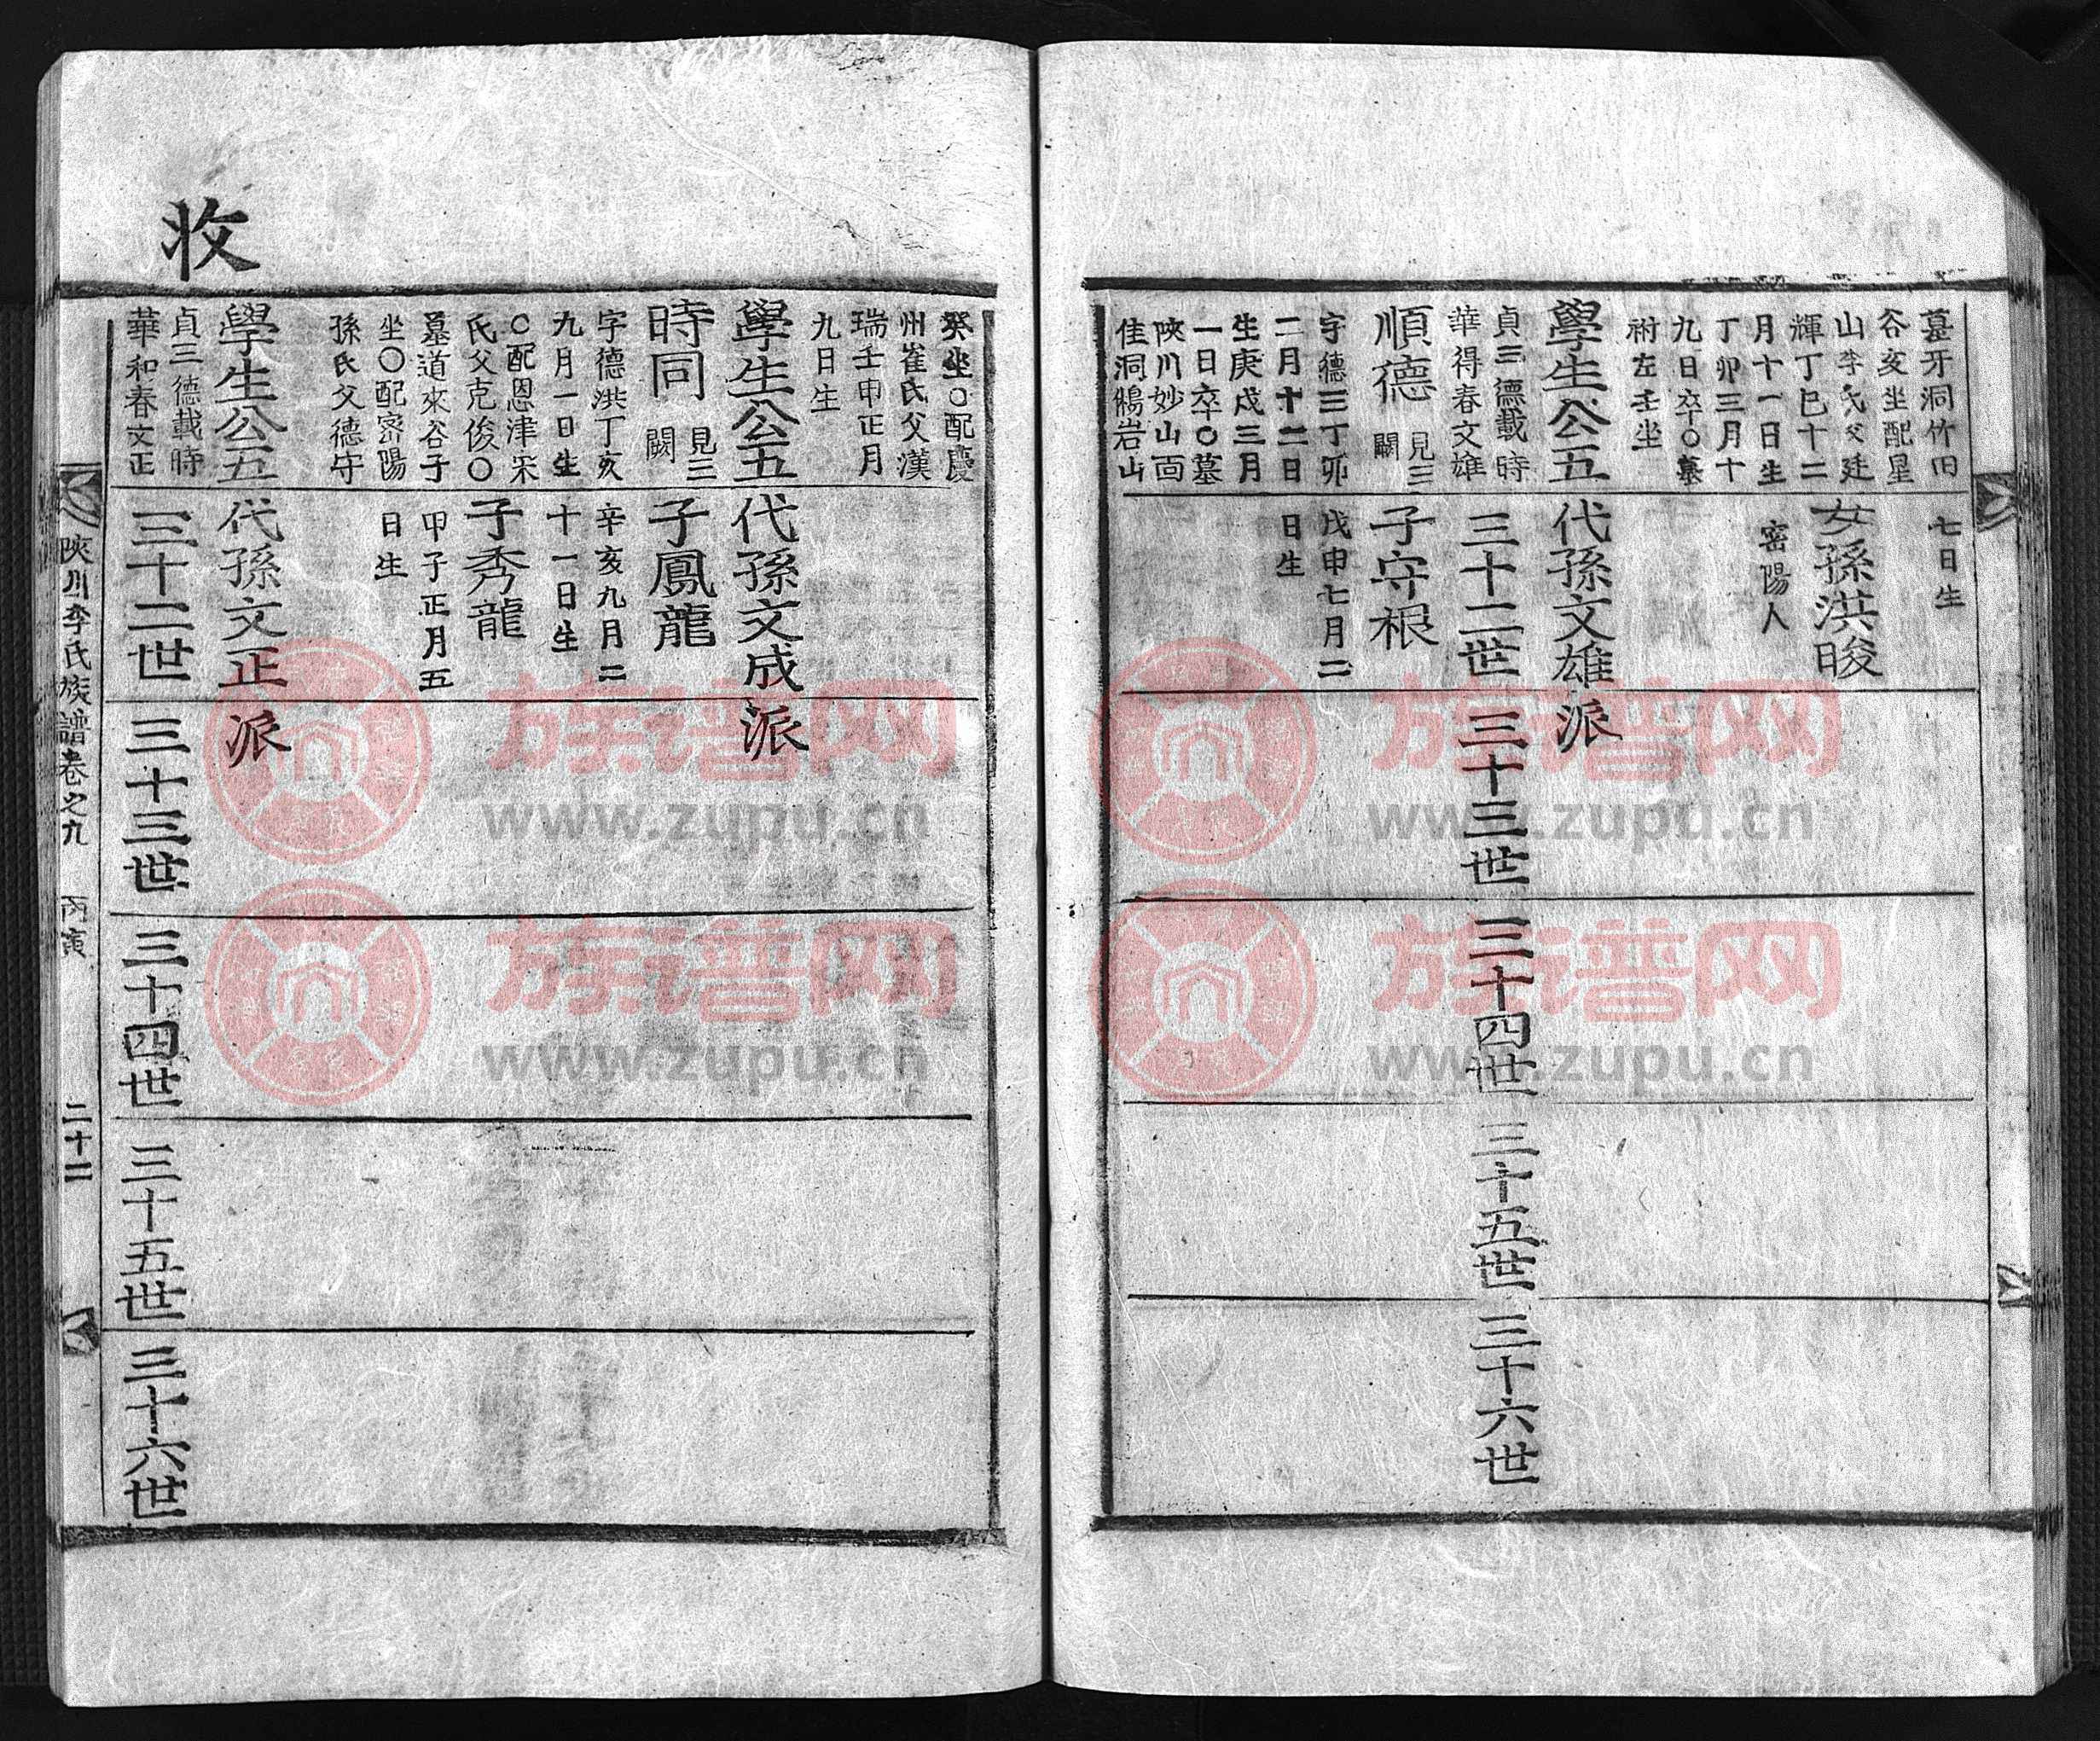 墓牙洞竹田
谷亥坐配星
山李氏父廷
輝丁巳十二
月十一日生
丁卯三月十
九日卒〇墓
祔左壬坐
學生公五
貞三德載時
華得春文雄
順德 見三闕
字德三丁卯
二月十二日
生庚戌三月
一日卒〇墓
陜川妙山面
佳洞鵂岩山
七日生
女孫洪晙
密陽人
代孫文雄
三十二世
子守根
戊申七月二
日生
派
三十三世
三十四世
三十五世
三十六世
收
癸坐〇配慶
州崔氏父漢
瑞壬申正月
九日生
學生公五
時同 見三闕
字德洪丁亥
九月一日生
〇配恩津宋
氏父克俊〇
墓道來谷子
坐〇配密陽
孫氏父德守
學生公五
貞三德載時
華和春文正
代孫文成
子鳳龍
辛亥九月二
十一日生
子秀龍
甲子正月五
日生
代孫文正
三十二世
派
派
三十三世
三十四世
三十五世
三十六世
陜川李氏族譜卷之九 丙寅 二十二
族谱网
www.zupu.cn
族谱网
www.zupu.cn
族谱网
www.zupu.cn
族谱网
www.zupu.cn